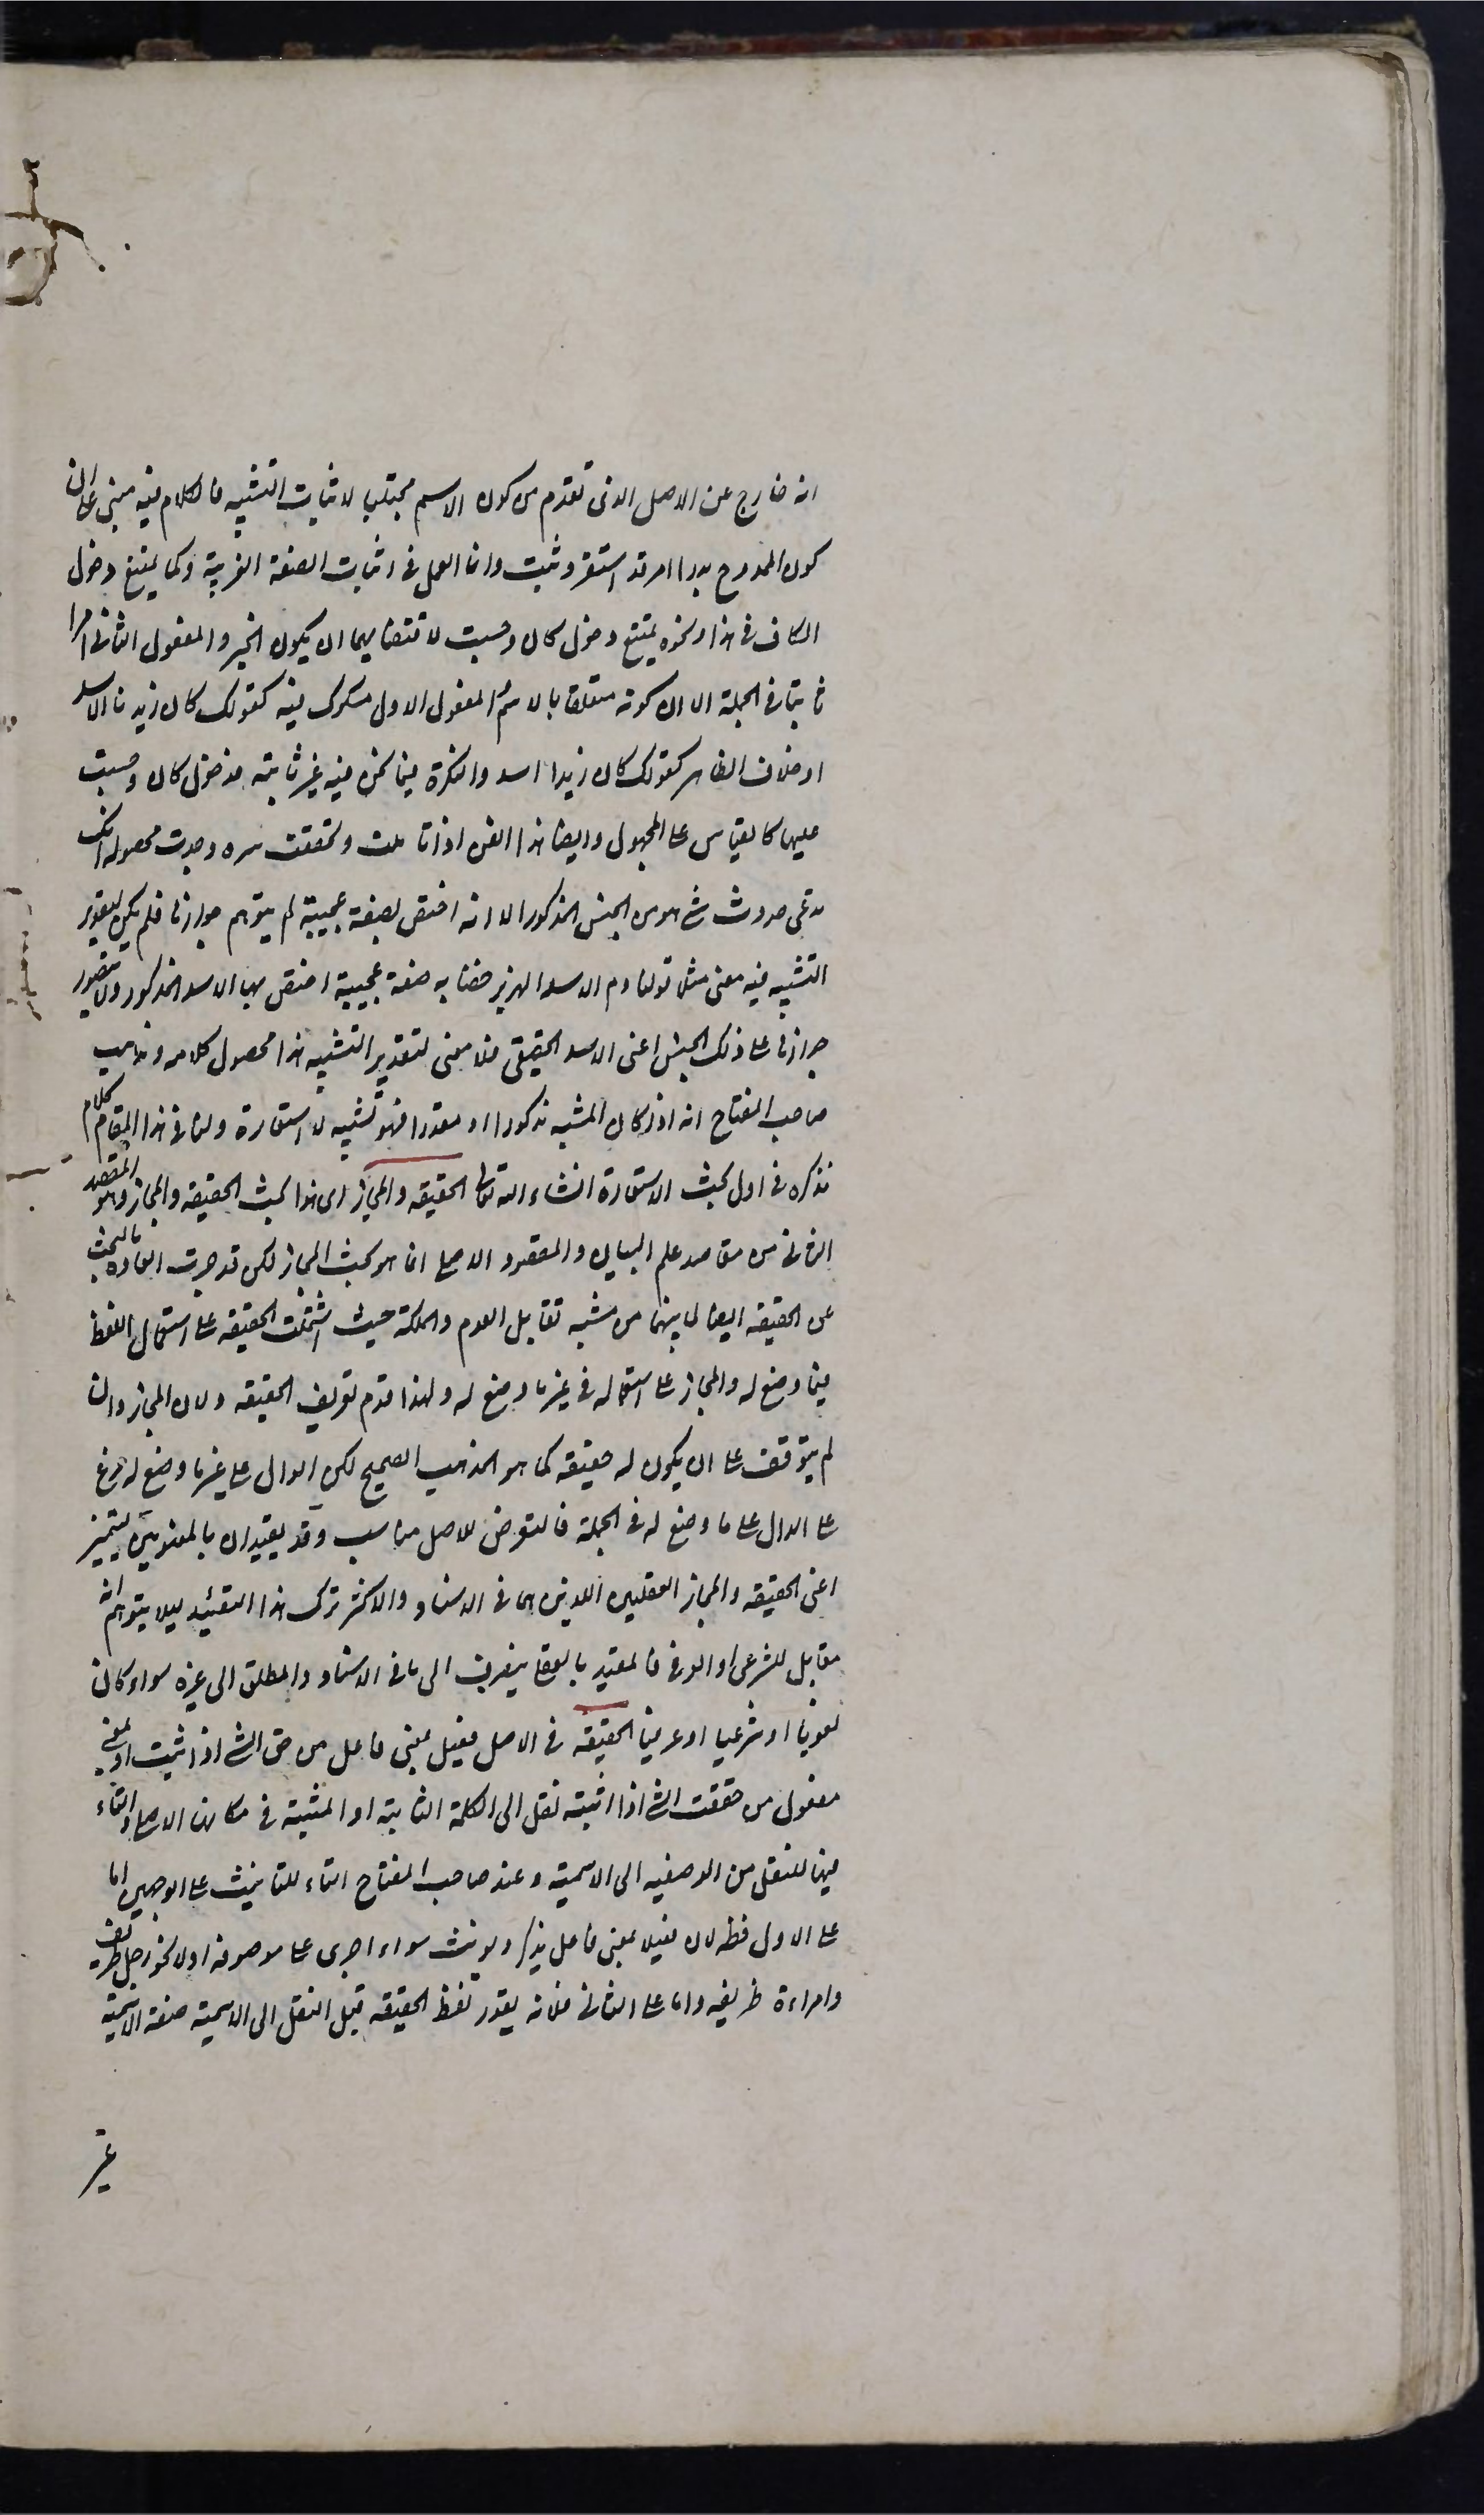 انه خارج عن الاصل الذى تقدم من كون الاسم مجتلبا لاثبات التشبيه فالكلام فيه مبنى على ان
كون الممدوح بدرا امر قد استقر وثبت وانما العمل فى اثبات الصفة الغريبة وكما يمتنع دخول
الكاف فى هذا ونحوه يمتنع دخول كان وحسبت لاقتضائهما ان يكون الخبر والمفعول الثانى امرا
ثابتا فى الجملة الا ان كونه متعلقا بالاسم والمفعول الاول مشكوك فيه كقولك كان زيدا الاسد
او خلاف الظاهر كقولك كان زيدا اسد والنكرة فيما نحن فيه غير ثابتة فدخول كان وحسبت
عليها كالقياس على المجهول وايضا هذا الفن اذا تاملت وتحققت سره وجدت محصوله انك
تدعى حدوث شئ هو من الجنس المذكور الا انه اختص بصفة عجيبة لم يتوهم جوازها فلم يكن لتقدير
التشبيه فيه معنى مثل قولنا دم الاسد الهزبر خضابه صفة عجيبة اختص بها الاسد المذكور ولا يتصور
جوازها على ذلك الجنس اعنى الاسد الحقيقى فلا معنى لتقدير التشبيه هذا محصول كلامه ومذهب
صاحب المفتاح انه اذا كان المشبه مذكورا او مقدرا فهو تشبيه لا استعارة ولنا فى هذا المقام كلام
نذكره فى اول بحث الاستعارة انشاء الله تعالى الحقيقه والمجاز اى هذا بحث الحقيقه والمجاز وهو المقصد
الثانى من مقاصد علم البيان والمقصود الاصلى انما هو بحث المجاز لكن قد جرت العادة بالبحث
عن الحقيقه ايضا لما بينهما من شبه تقابل العدم والملكة حيث اشتملت الحقيقه على استعمال اللفظ
فيما وضع له والمجاز على استعماله فى غير ما وضع له ولهذا قدم تعريف الحقيقه ولان المجاز وان
لم يتوقف على ان يكون له حقيقه كما هو المذهب الصحيح لكن الدال على غير ما وضع له فرع
على الدال على ما وضع له فى الجملة فالتعرض للاصل مناسب وقد يقيدان باللغويين ليتميز
اعنى الحقيقه والمجاز العقليين اللذين هما فى الاسناد والاكثر ترك هذا التقييد ليلا يتوهم انه
مقابل للشرعى او العرفى فالمقيد بالعقلى ينصرف الى ما فى الاسناد والمطلق الى غيره سواء كان
لغويا او شرعيا او عرفيا الحقيقه فى الاصل فعيل بمعنى فاعل من حق الشئ اذا ثبت او بمعنى
مفعول من حققت الشئ اذا اثبته نقل الى الكلمة الثابتة او المثبتة فى مكانها الاصلى والتاء
فيها للنقل من الوصفيه الى الاسمية وعند صاحب المفتاح التاء للتانيث على الوجهين اما
على الاول فظ لان فعيلا بمعنى فاعل يذكر ويونث سواء اجرى على موصوفه اولا نحو رجل ظريف
وامراءة ظريفه واما على الثانى فلانه يقدر لفظ الحقيقه قبل النقل الى الاسمية صفة
غير